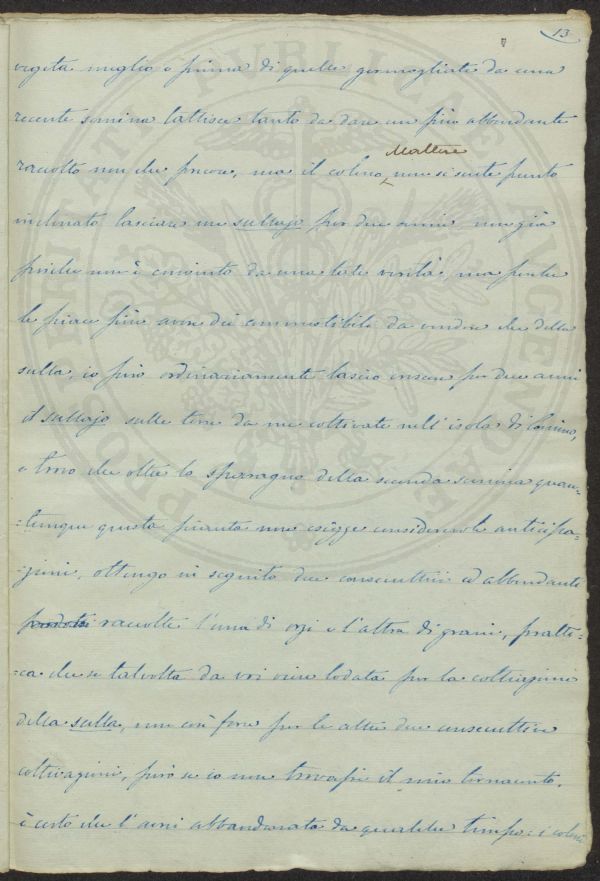 13
vegeta meglio e prima di quelle germogliate da una
recente semina lattisce tanto da dare un più abbondante
raccolto non che precoce, ma il colono Maltese non si sente punto
inclinato lasciare un sullajo per due anni non già
perche non è convinto da una tale verità, ma perche
le piace più avere dei commestibili da vendere che della
sulla, io però ordinariamente lascio crescere per due anni
il sullajo sulle terre da me coltivate nell'isola di Comino,
e trovo che oltre lo sparagno della seconda semina quan=
=tunque questa pianta non esigge considerevole anticipa=
=zioni, ottengo in seguito due consecuttivi ed abbondante
raccolte l'una di orzi e l'altra di grani, pratti=
=ca che se talvolta da voi viene lodata per la coltivazione
della sulla, non così forse per le altre due consecuttive
coltivazioni, però se io non trovassi il mio tornaconto,
è certo che l'avrei abbandonata da qualche tempo: i coloni
PUBLI UTILITATI AUGENDAE